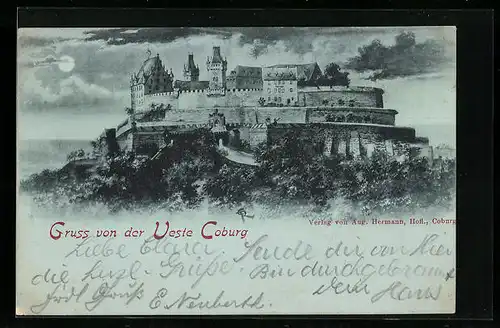 Gruss von der Veste Coburg
Verlag von Aug. Hermann, Hofl., Coburg
Liebe Clara! Sende dir von hier
die herzl. Grüße. Bin durchgebrannt
dem Hans
Gruß E. Neuberth.